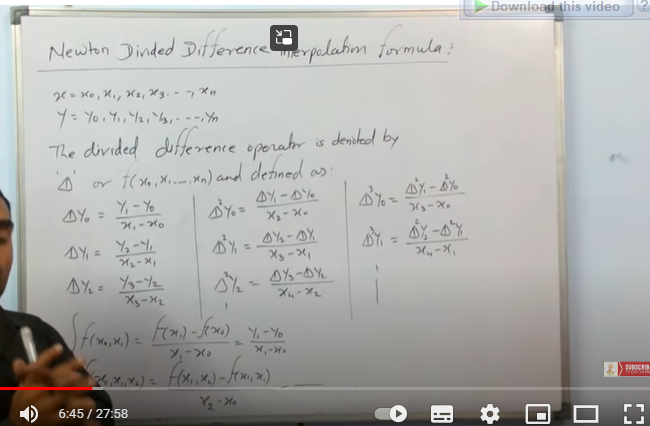 Download this video
Newton Divided Difference Interpolation formula:
x = x0, x1, x2, x3 - - -, xn
Y = Y0, Y1, Y2, Y3, - - -, Yn
The divided difference operator is denoted by
'Δ' or f(x0, x1 - - -, xn) and defined as:
ΔY0 = (Y1 - Y0)/(x1 - x0)
ΔY1 = (Y2 - Y1)/(x2 - x1)
ΔY2 = (Y3 - Y2)/(x3 - x2)
Δ²Y0 = (ΔY1 - ΔY0)/(x2 - x0)
Δ²Y1 = (ΔY2 - ΔY1)/(x3 - x1)
Δ²Y2 = (ΔY3 - ΔY2)/(x4 - x2)
Δ³Y0 = (Δ²Y1 - Δ²Y0)/(x3 - x0)
Δ³Y1 = (Δ²Y2 - Δ²Y1)/(x4 - x1)
f(x0, x1) = (f(x1) - f(x0))/(x1 - x0) = (Y1 - Y0)/(x1 - x0)
(x0, x1, x2) = (f(x1, x2) - f(x0, x1))/(x2 - x0) - - -
SUBSCRIBE
6:45 / 27:58